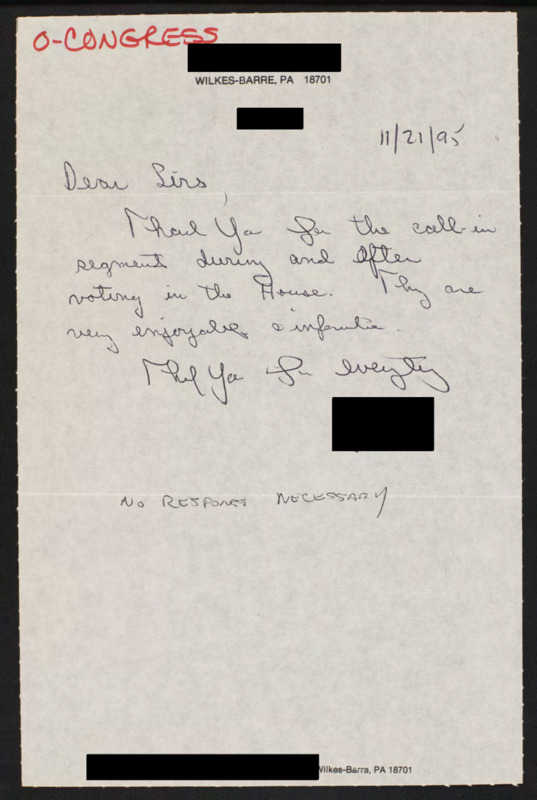 O-CONGRESS
WILKES-BARRE, PA 18701
11/21/95
Dear Sirs,
Thank You for the call-in
segment during and after
voting in the House. They are
very enjoyable & informative.
Thank You for everything
NO RESPONSE NECESSARY
Wilkes-Barre, PA 18701